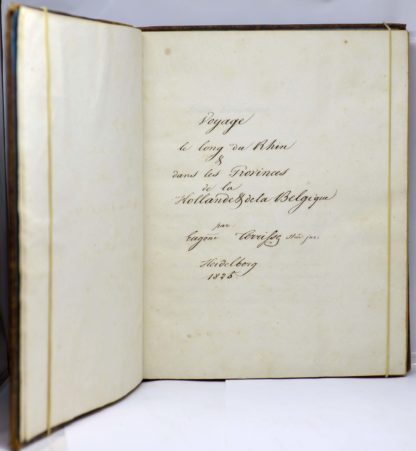 Voyage
le long du Rhin
&
dans les Provinces
de la
Hollande & de la Belgique
par
Eugène
Heidelberg
1825